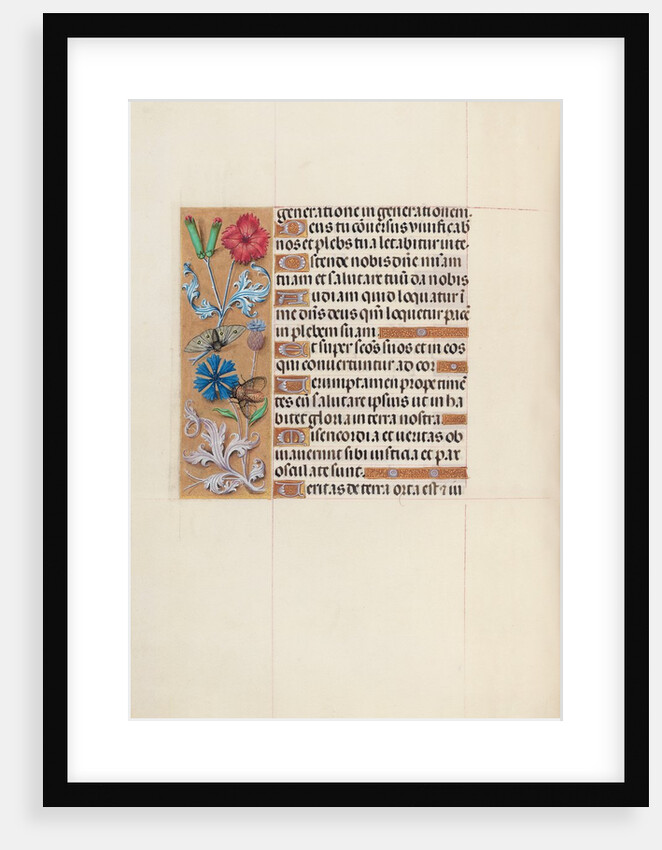 generatione in generationem.
Deus tu cōuersus viuificab
nos et plebs tua letabitur in te.
Ostende nobis dn̄e miam
tuam et salutare tuū da nobis
Audiam quid loquatur ī
me dn̄s deus qm̄ loquetur pacē
in plebem suam.
Et super scōs suos et in eos
qui conuertuntur ad cor
Verumptamen prope timē
tes eū salutare ipsius ut in ha
bitet gloria in terra nostra
Misericordia et ueritas ob
uiauerunt sibi iusticia et pax
osculate sunt.
Veritas de terra orta est ⁊ iu